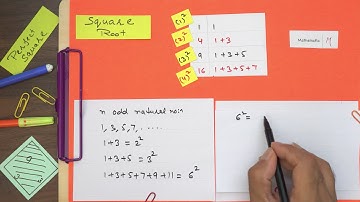 Perfect
Square
Square
Root
(1)² 1 1
(2)² 4 1+3
(3)² 9 1+3+5
(4)² 16 1+3+5+7
Mathematic M
n odd natural no:n
1, 3, 5, 7, .....
1+3 = 2²
1+3+5 = 3²
1+3+5+7+9+11 = 6²
6² =